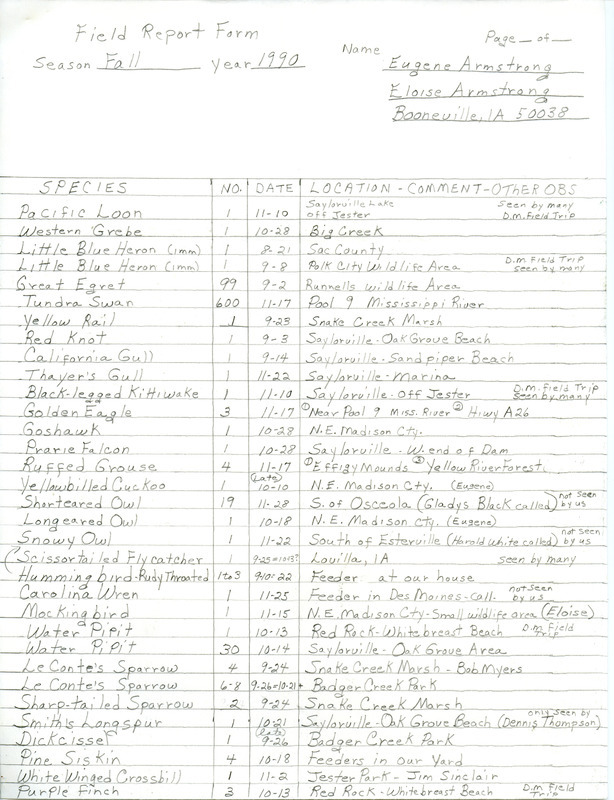 Field Report Form
Page __ of __
Season Fall Year 1990
Name Eugene Armstrong
Eloise Armstrong
Booneville, IA 50038
SPECIES NO. DATE LOCATION-COMMENT-OTHER OBS
Pacific Loon 1 11-10 Saylorville Lake off Jester Seen by many D.M. Field Trip
Western Grebe 1 10-28 Big Creek
Little Blue Heron (imm) 1 8-21 Sac County
Little Blue Heron (imm) 1 9-8 Polk City Wildlife Area D.M. Field Trip seen by many
Great Egret 99 9-2 Runnells wildlife Area
Tundra Swan 600 11-17 Pool 9 Mississippi River
Yellow Rail 1 9-23 Snake Creek Marsh
Red Knot 1 9-3 Saylorville-Oak Grove Beach
California Gull 1 9-14 Saylorville-Sandpiper Beach
Thayer's Gull 1 11-22 Saylorville-Marina
Black-legged Kittiwake 1 11-10 Saylorville-Off Jester D.M. Field Trip Seen by many
Golden Eagle 3 11-17 ① Near Pool 9 Miss. River ② Hiwy A26
Goshawk 1 10-28 N.E. Madison Cty.
Prarie Falcon 1 10-28 Saylorville-W. end of Dam
Ruffed Grouse 4 11-17 ① Effigy Mounds ③ Yellow River Forest
Yellowbilled Cuckoo 1 (Late) 10-10 N.E. Madison Cty. (Eugene)
Shorteared Owl 19 11-28 S. of Osceola (Gladys Black called) not seen by us
Longeared Owl 1 10-18 N.E. Madison Cty. (Eugene)
Snowy Owl 1 11-22 South of Esterville (Harold White called) not seen by us
(Scissortailed Flycatcher 1 9-25=10-13? Louilla, IA seen by many
Hummingbird-Rudy Throated 1 to 3 9-10=22 Feeder at our house
Carolina Wren 1 11-25 Feeder in Des Moines-call. not seen by us
Mockingbird 1 11-15 N.E. Madison Cty-Small wildlife area (Eloise)
Water Pipit 1 10-13 Red Rock-Whitebreast Beach D.M. Field Trip
Water Pipit 30 10-14 Saylorville-Oak Grove Area
Le Conte's Sparrow 4 9-24 Snake Creek Marsh-Bob Myers
Le Conte's Sparrow 6-8 9-26=10-21+ Badger Creek Park
Sharp-tailed Sparrow 2 9-24 Snake Creek Marsh
Smith's Longspur 1 10-21 Saylorville-Oak Grove Beach (Dennis Thompson) only seen by
Dickcissel 1 (Late) 9-26 Badger Creek Park
Pine Siskin 4 10-18 Feeders in our Yard
White Winged Crossbill 1 11-2 Jester Park-Jim Sinclair
Purple Finch 3 10-13 Red Rock-Whitebreast Beach D.M. Field Trip